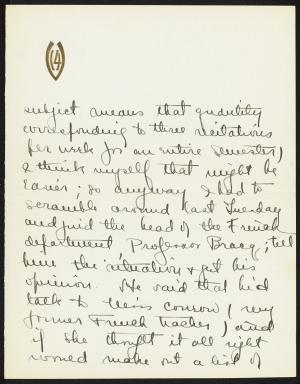 14
subject means that quantity
corresponding to three recitations
per week for an entire semester)
I think myself that might be
easier; so anyway I had to
scramble around last Tuesday
and find the head of the French
department Professor Bracq; tell
him the situation & get his
opinion. He said that he'd
talk to Miss Conrow (my
former French teacher) and
if she thought it all right
would make out a list of